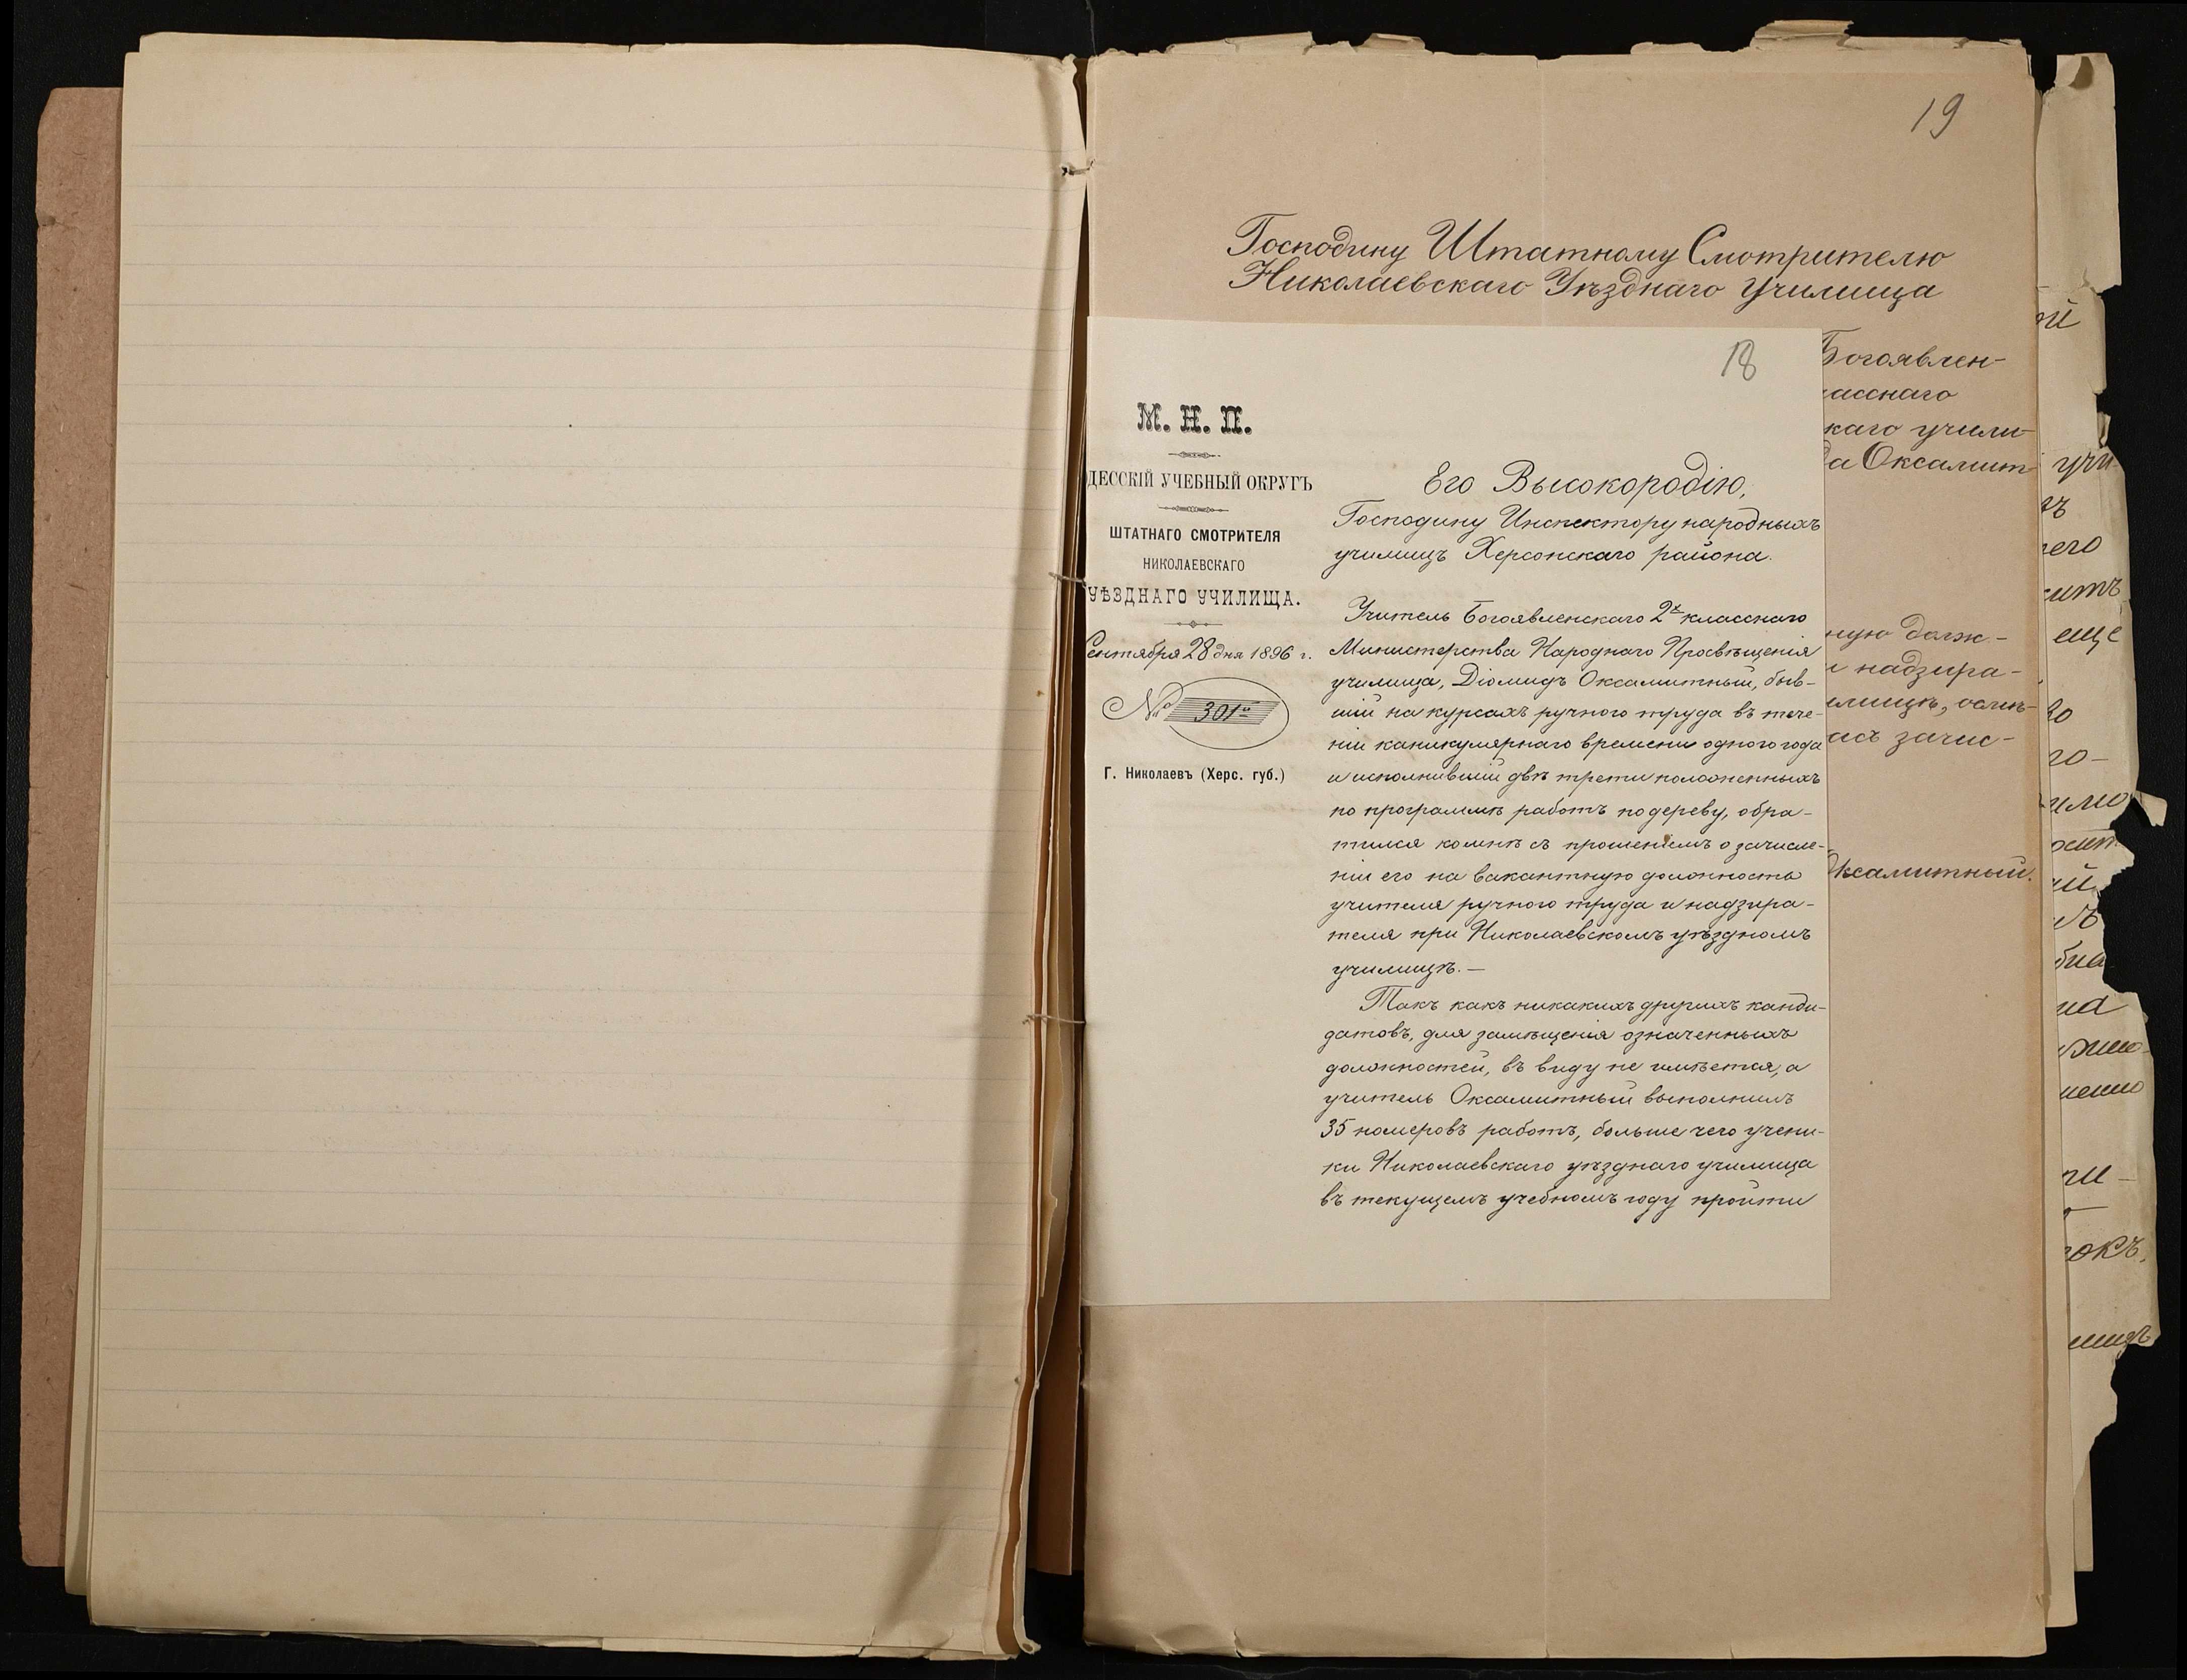 19
Господину Штатному Смотрителю
Николаевскаго Уѣзднаго Училища
18
М. Н. П.
ДЕССКІЙ УЧЕБНЫЙ ОКРУГЪ
ШТАТНАГО СМОТРИТЕЛЯ
НИКОЛАЕВСКАГО
УѢЗДНАГО УЧИЛИЩА.
Сентября 28 дня 1896 г.
№ 301
Г. Николаевъ (Херс. губ.)
Его Высокородію,
Господину Инспектору народныхъ
училищъ Херсонскаго района.
Учитель Богоявленскаго 2х класснаго
Министерства Народнаго Просвѣщенія
училища, Діомидъ Оксамитный, быв-
шій на курсахъ ручного труда въ тече-
ніи каникулярнаго времени одного года
и исполнившій двѣ трети положенныхъ
по программѣ работъ по дереву, обра-
тился ко мнѣ съ прошеніемъ о зачисле-
ніи его на вакантную должность
учителя ручного труда и надзира-
теля при Николаевскомъ уѣздномъ
училищѣ. —
Такъ какъ никакихъ другихъ канди-
датовъ, для замѣщенія означенныхъ
должностей, въ виду не имѣется, а
учитель Оксамитный выполнилъ
35 номеровъ работъ, больше чего учени-
ки Николаевскаго уѣзднаго училища
въ текущемъ учебномъ году пройти
Богоявлен-
асснаго
каго учили-
да Оксамит
ную долж-
и надзира-
илищѣ, осмѣ-
ась зачис-
Оксамитный.
учи-
его
еще